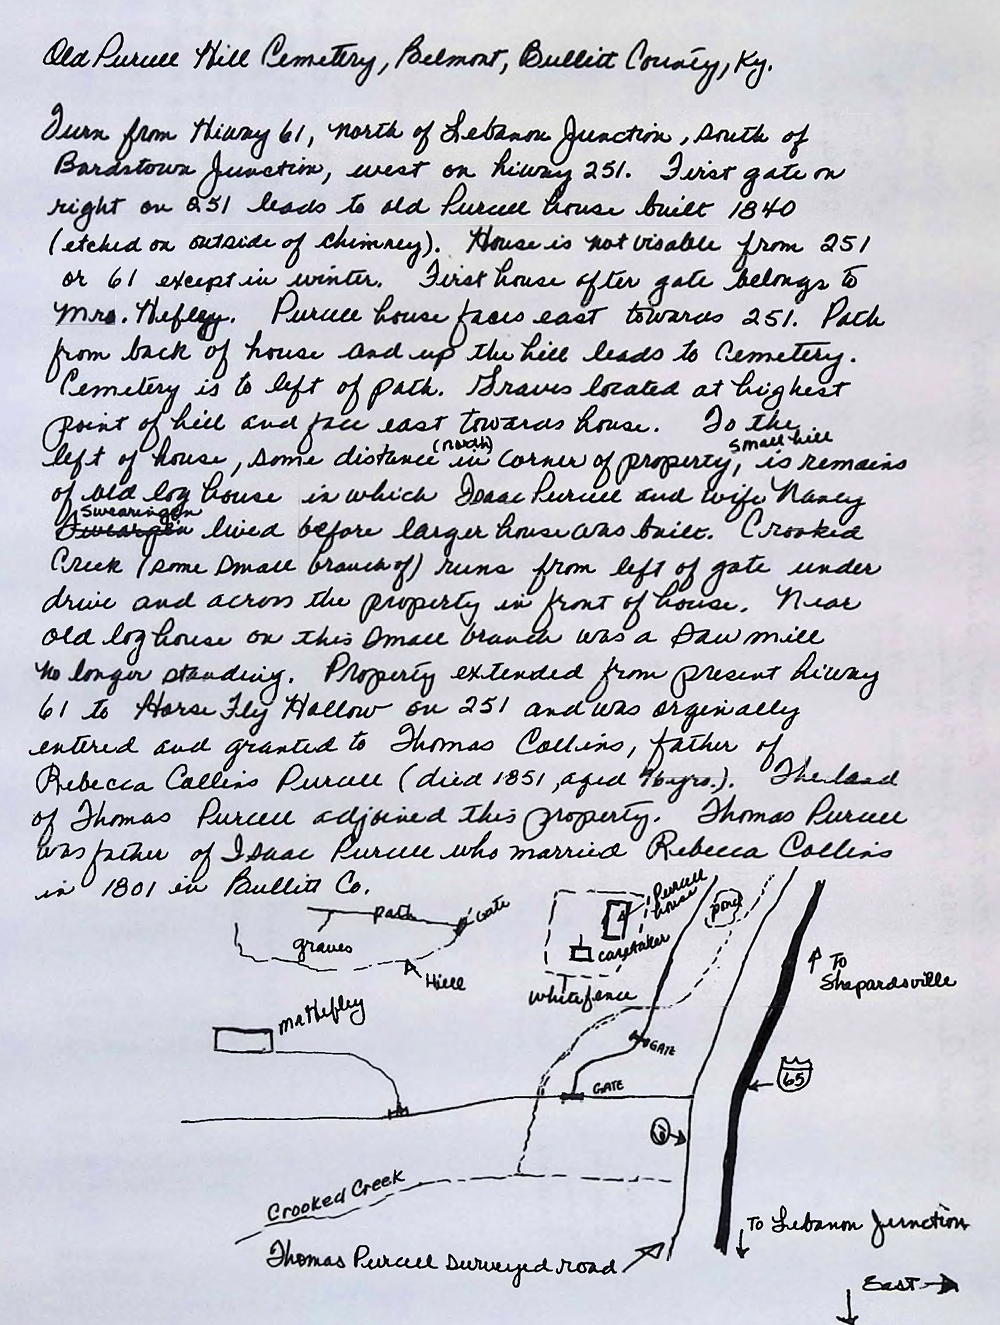 Old Purcell Hill Cemetery, Belmont, Bullitt County, Ky.
Turn from Hiway 61, north of Lebanon Junction, south of
Bardstown Junction, west on hiway 251. First gate on
right on 251 leads to old Purcell house built 1840
(etched on outside of chimney). House is not visable from 251
or 61 except in winter. First house after gate belongs to
Mrs. Hefley. Purcell house faces east towards 251. Path
from back of house and up the hill leads to Cemetery.
Cemetery is to left of path. Graves located at highest
point of hill and face east towards house. To the
left of house, some distance (north) in corner of property, small hill is remains
of old log house in which Isaac Purcell and wife Nancy
Swearingen lived before larger house was built. Crooked
Creek (some small branch of) runs from left of gate under
drive and across the property in front of house. Near
old log house on this small branch was a saw mill
no longer standing. Property extended from present hiway
61 to Horse Fly Hollow on 251 and was orginally
entered and granted to Thomas Collins, father of
Rebecca Collins Purcell (died 1851, aged yrs.). The land
of Thomas Purcell adjoined this property. Thomas Purcell
was father of Isaac Purcell who married Rebecca Collins
in 1801 in Bullitt Co.
path
Gate
graves
Hill
Purcell
house
caretaker
pond
White fence
To
Shepardsville
Mr Hefley
GATE
GATE
65
Crooked Creek
To Lebanon Junction
Thomas Purcell surveyed road
East